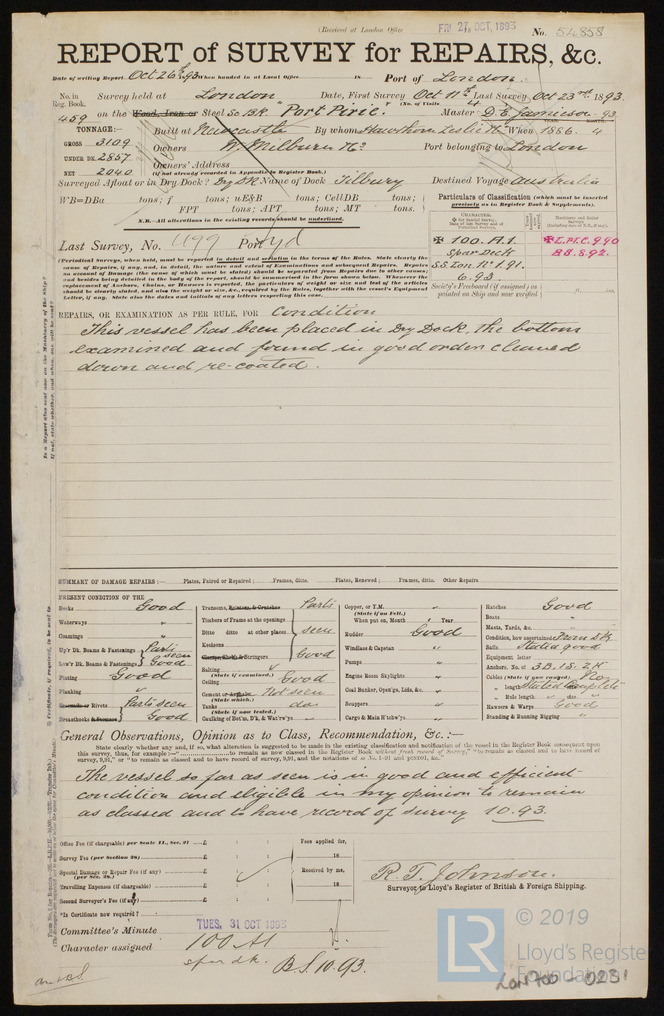 (Received at London Office FRI 27, OCT, 1893 No. 54858
REPORT of SURVEY for REPAIRS, &c.
Date of writing Report Oct 26th 93 When handed in at Local Office 18 Port of London.
No. in Reg. Book. Survey held at London Date, First Survey Oct 11th Last Survey Oct 23rd 1893
(No. of Visits 4
459 on the Wood, Iron or Steel Sc Bk "Port Pirie." Master D. E. Jamieson 93
TONNAGE:— Built at Newcastle By whom Hawthorn Leslie & Co When 1886. 4
GROSS 3109 Owners W. Milburn & Co Port belonging to London
UNDER DK. 2857 Owners' Address
NET 2040 (if not already recorded in Appendix to Register Book.)
Surveyed Afloat or in Dry Dock? Dry Dk Name of Dock Tilbury Destined Voyage Australia
WB=DBa tons; f tons; uE&B tons; CellDB tons;
FPT tons; APT tons; MT tons.
N.B.—All alterations in the existing records should be underlined.
Particulars of Classification (which must be inserted
precisely as in Register Book & Supplements).
Last Survey, No. Port
100. A.1. L.M.C. 9.90
Spar Deck B.S. 8.92.
S.S. Lon. No 1. 91.
6.93
Society's Freeboard (if assigned) as
painted on Ship and now verified
(Periodical Surveys, when held, must be reported in detail and seriatim in the terms of the Rules. State clearly the
name of Repairs, if any, and, in detail, the nature and extent of Examinations and subsequent Repairs. Repairs
on account of Damage (the cause of which must be stated) should be separated from Repairs due to other causes;
and besides being detailed in the body of the report, should be summarised in the form shown below. Whenever the
replacement of Anchors, Chains, or Hawsers is reported, the particulars of weight or size and test of the articles
should be clearly stated, and also the weight or size, &c., required by the Rules, together with the vessel's Equipment
Letter, if any. State also the dates and initials of any letters respecting this case.
REPAIRS, OR EXAMINATION AS PER RULE, FOR Condition
This vessel has been placed in Dry Dock, the bottom
examined and found in good order cleaned
down and re-coated.
SUMMARY OF DAMAGE REPAIRS:— Plates, Faired or Repaired; Frames, ditto. Plates, Renewed; Frames, ditto. Other Repairs
PRESENT CONDITION OF THE
Decks Good
Waterways "
Coamings "
Up'r Dk. Beams & Fastenings Parts seen
Low'r Dk. Beams & Fastenings Good
Plating Good
Planking "
Treenails or Rivets Parts seen
Breasthooks & Stemson Good
Transoms, Pointers, & Crutches Parts
Timbers of Frame at the openings
Ditto ditto at other places seen
Keelsons
Clamps, Shelfs & Stringers Good
Salting (State if examined.) "
Ceiling Good
Cement or Asphalte (State which.) Not seen
Tanks (State if now tested.) do
Caulking of Bot'm, D'k, & Wat'rw'ys "
Copper, or Y.M. (State if on Felt.) "
When put on, Month " Year
Rudder Good
Windlass & Capstan "
Pumps "
Engine Room Skylights "
Coal Bunker, Open'gs, Lids, &c. "
Scuppers "
Cargo & Main H'tchw'ys "
Hatches Good
Boats "
Masts, Yards, &c. "
Condition, how ascertained From Dk
Sails Stated good
Equipment letter
Anchors, No. of 3B. 1S. 2K
Cables (State if now ranged) No
" length Stated complete
" Rule length " size
Hawsers & Warps Good
Standing & Running Rigging "
General Observations, Opinion as to Class, Recommendation, &c.:—
State clearly whether any and, if so, what alteration is suggested to be made in the existing classification and notification of the vessel in the Register Book consequent upon
this survey, thus, for example:— "to remain as classed in the Register Book without fresh record of Survey," "to remain as classed and to have record of
survey, 9,91," or "to remain as classed and to have record of survey, 9,91, and the notations of ss No. 1-91 and pt91, &c."
The vessel so far as seen is in good and efficient
condition and eligible in my opinion to remain
as classed and to have record of survey 10.93.
Office Fee (if chargeable) per Scale 11., Sec. 9) £ : : Fees applied for,
Survey Fee (per Section 28) £ : : 18
Special Damage or Repair Fee (if any) (per Sec. 28.) £ : : Received by me,
Travelling Expenses (if chargeable) £ : : 18
Second Surveyor's Fee (if any) £ : :
*Is Certificate now required?
R. T. Johnson.
Surveyor to Lloyd's Register of British & Foreign Shipping.
Committee's Minute TUES. 31 OCT 1893
Character assigned 100 A1
spar dk. B.S. 10.93.
LR © 2019
Lloyd's Register
Foundation
LON 700 - 0231